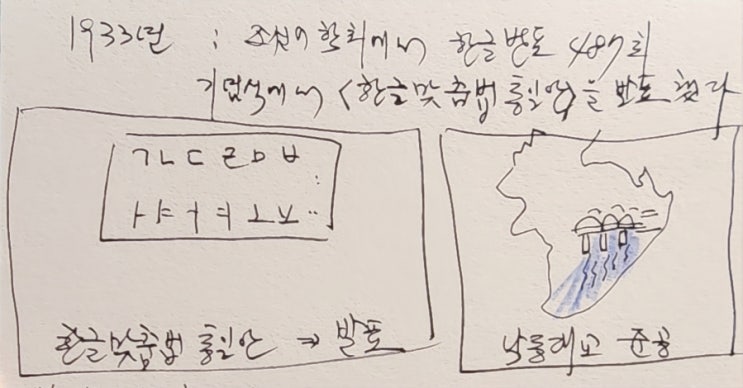 1933년 : 조선어학회에서 한글반포 487회
기념식에서 <한글맞춤법통일안>을 발표했다
ㄱㄴㄷㄹㅁㅂ
ㅏㅑㅓㅕㅗㅛ··
한글맞춤법 통일안 → 발표
낙동대교 준공